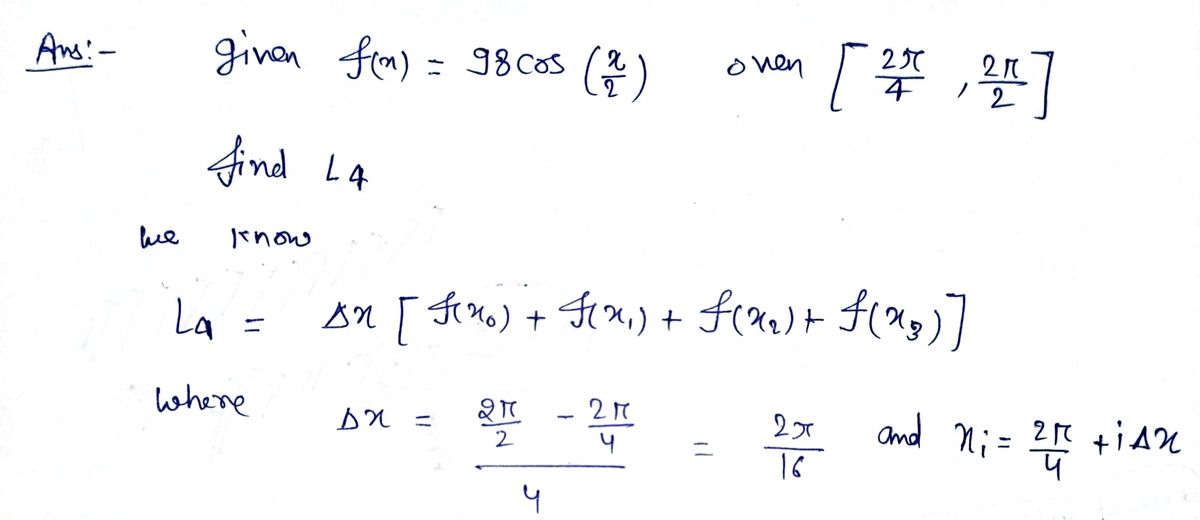 Ans:- given f(x) = 98 cos (x/2) over [2π/4, 2π/2]
find L4
we know
L4 = Δx [f(x₀) + f(x₁) + f(x₂) + f(x₃)]
where Δx = (2π/2 - 2π/4)/4 = 2π/16 and xᵢ = 2π/4 + iΔx